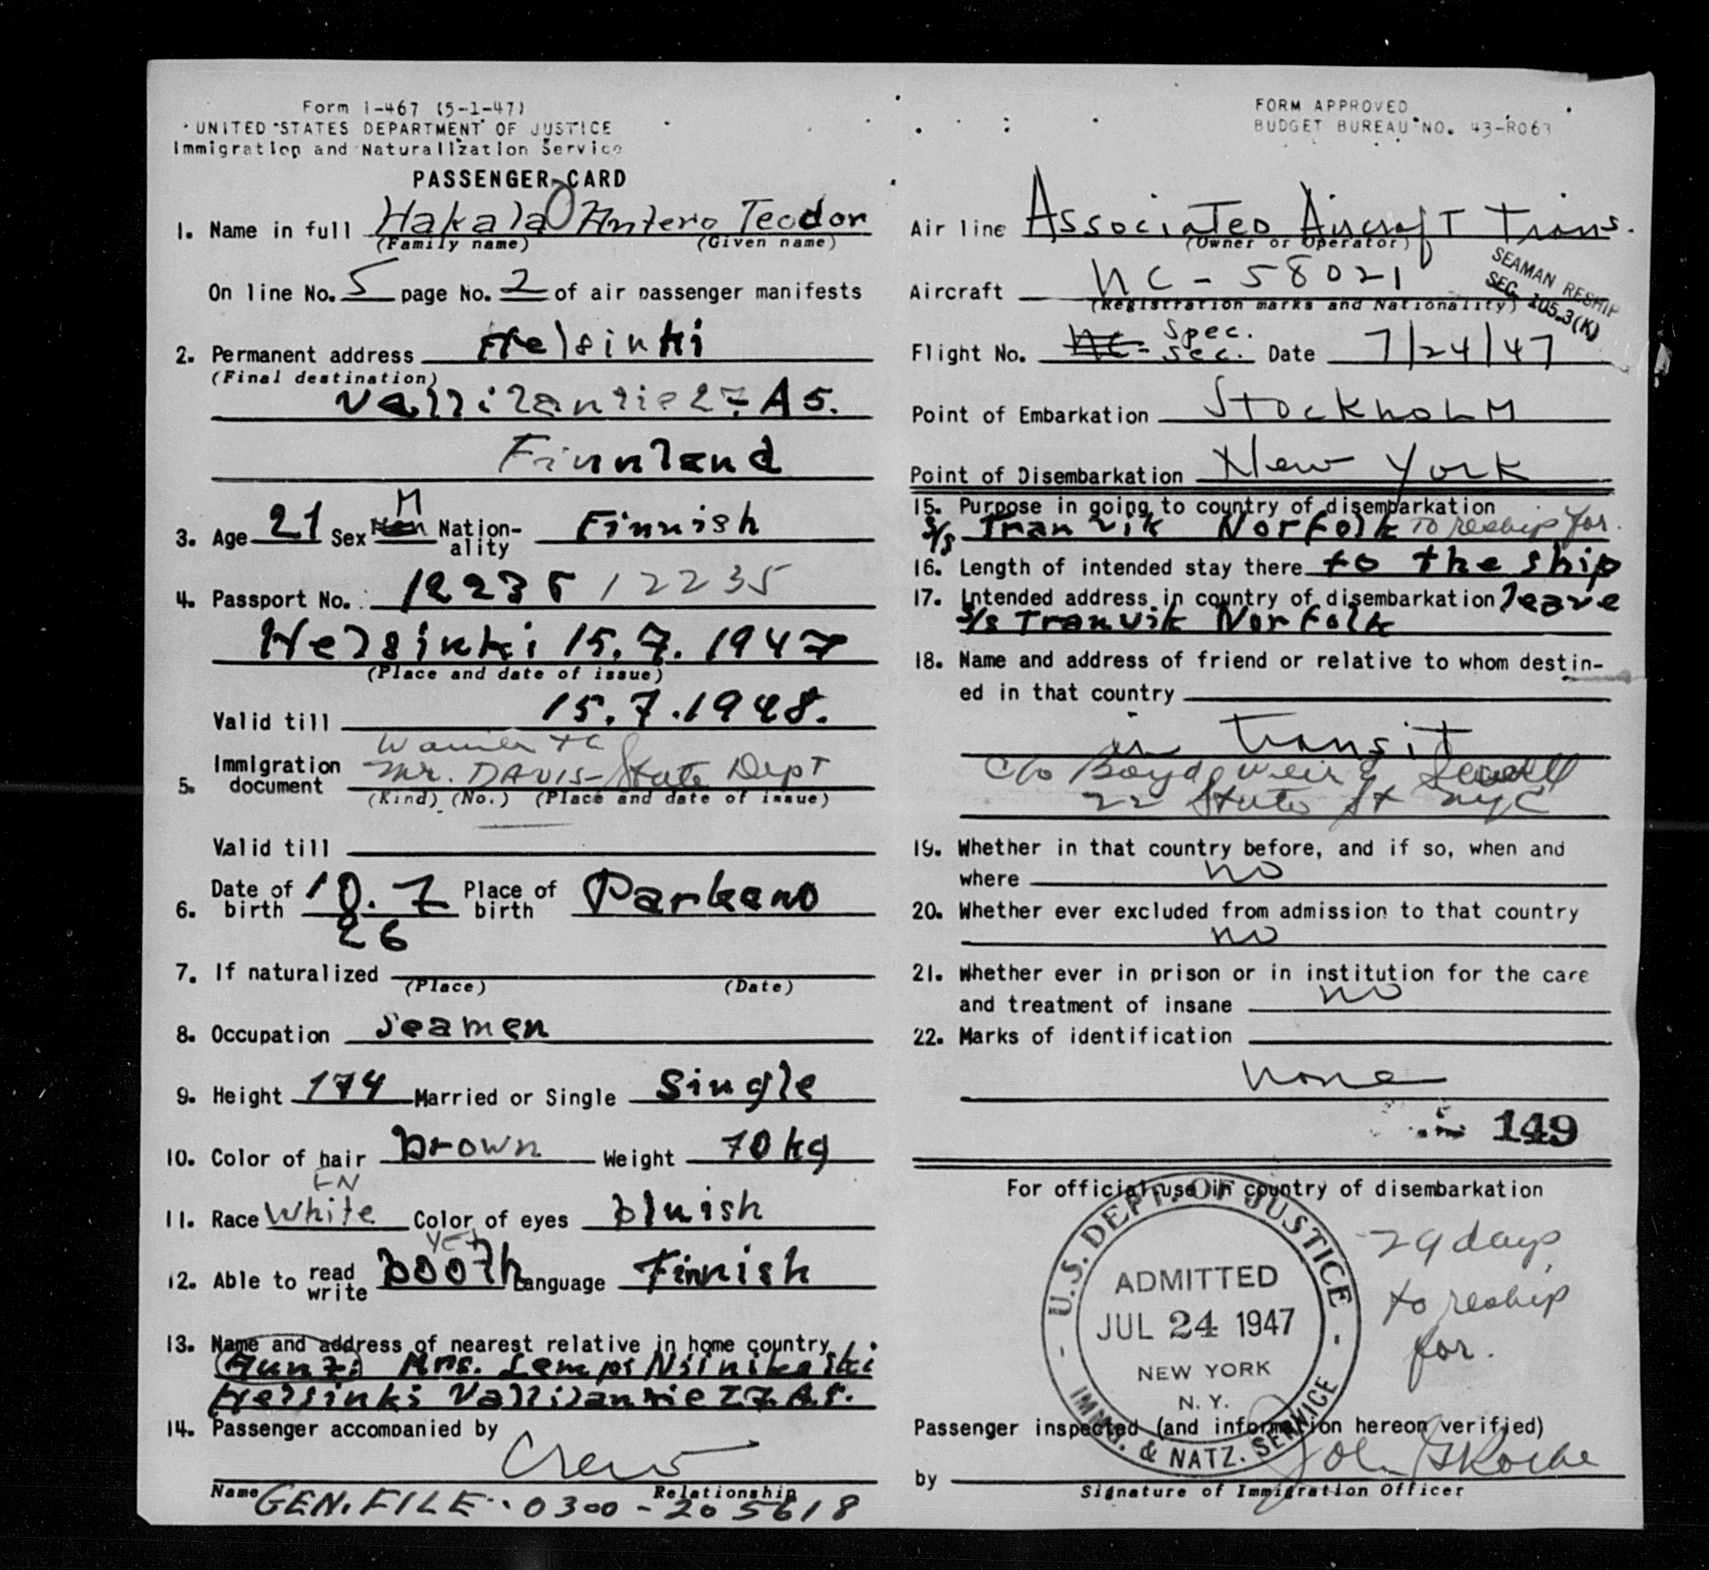 Form I-467 (5-1-47)
UNITED STATES DEPARTMENT OF JUSTICE
Immigration and Naturalization Service
PASSENGER CARD
1. Name in full Hakala Antero Teodor
(Family name) (Given name)
On line No. 5 page No. 2 of air passenger manifests
2. Permanent address Helsinki
(Final destination)
27. A 5.
Finnland
3. Age 21 Sex M Nation-ality Finnish
4. Passport No. 12235 12235
Helsinki 15.7.1947
(Place and date of issue)
Valid till 15.7.1948.
5. Immigration document Mr. DAVIS - State Dept
(Kind) (No.) (Place and date of issue)
Valid till
6. Date of birth 10.7 26 Place of birth Parkano
7. If naturalized
(Place) (Date)
8. Occupation Seamen
9. Height 174 Married or Single Single
10. Color of hair brown Weight 70 kg
FN
11. Race White Color of eyes bluish
yes
12. Able to read write booth Language Finnish
13. Name and address of nearest relative in home country
Mrs.
Helsinki
14. Passenger accompanied by
Crew
Name Relationship
GEN. FILE. 0300-205618
FORM APPROVED
BUDGET BUREAU NO. 43-R063
Air line Associated Aircraft Trans.
(Owner or Operator)
Aircraft NC-58021
(Registration marks and Nationality)
SEAMAN RESHIP
SEC. 105.3(K)
Spec.
Flight No. NC- Sec. Date 7/24/47
Point of Embarkation Stockholm
Point of Disembarkation New York
15. Purpose in going to country of disembarkation
s/s Tranvik Norfolk to reship for.
16. Length of intended stay there to the ship
17. Intended address in country of disembarkation leave
s/s Tranvik Norfolk
18. Name and address of friend or relative to whom destin-
ed in that country
in transit
c/o Boyd, Weir & Sewell
22 State St NYC
19. Whether in that country before, and if so, when and
where no
20. Whether ever excluded from admission to that country
no
21. Whether ever in prison or in institution for the care
and treatment of insane no
22. Marks of identification
none
149
For official use in country of disembarkation
U.S. DEPT. OF JUSTICE
ADMITTED
JUL 24 1947
NEW YORK
N. Y.
IMM. & NATZ. SERVICE
29 days
to reship
for.
Passenger inspected (and information hereon verified)
by John
Signature of Immigration Officer